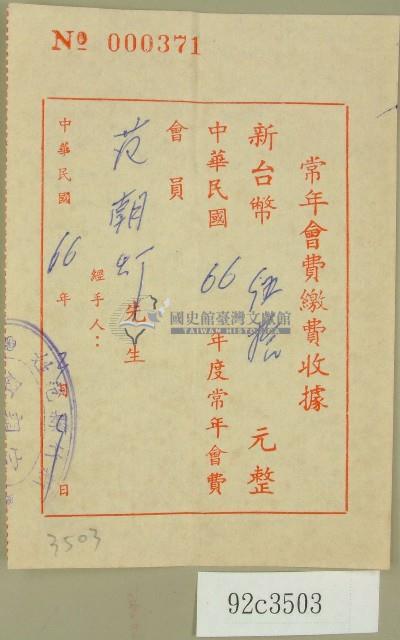 № 000371
常年會費繳費收據
新台幣 伍拾 元整
中華民國 66 年度常年會費
會員
范朝灯 先生
經手人：
中華民國 66 年 月 日
國史館臺灣文獻館
TAIWAN HISTORICA
3503
92c3503